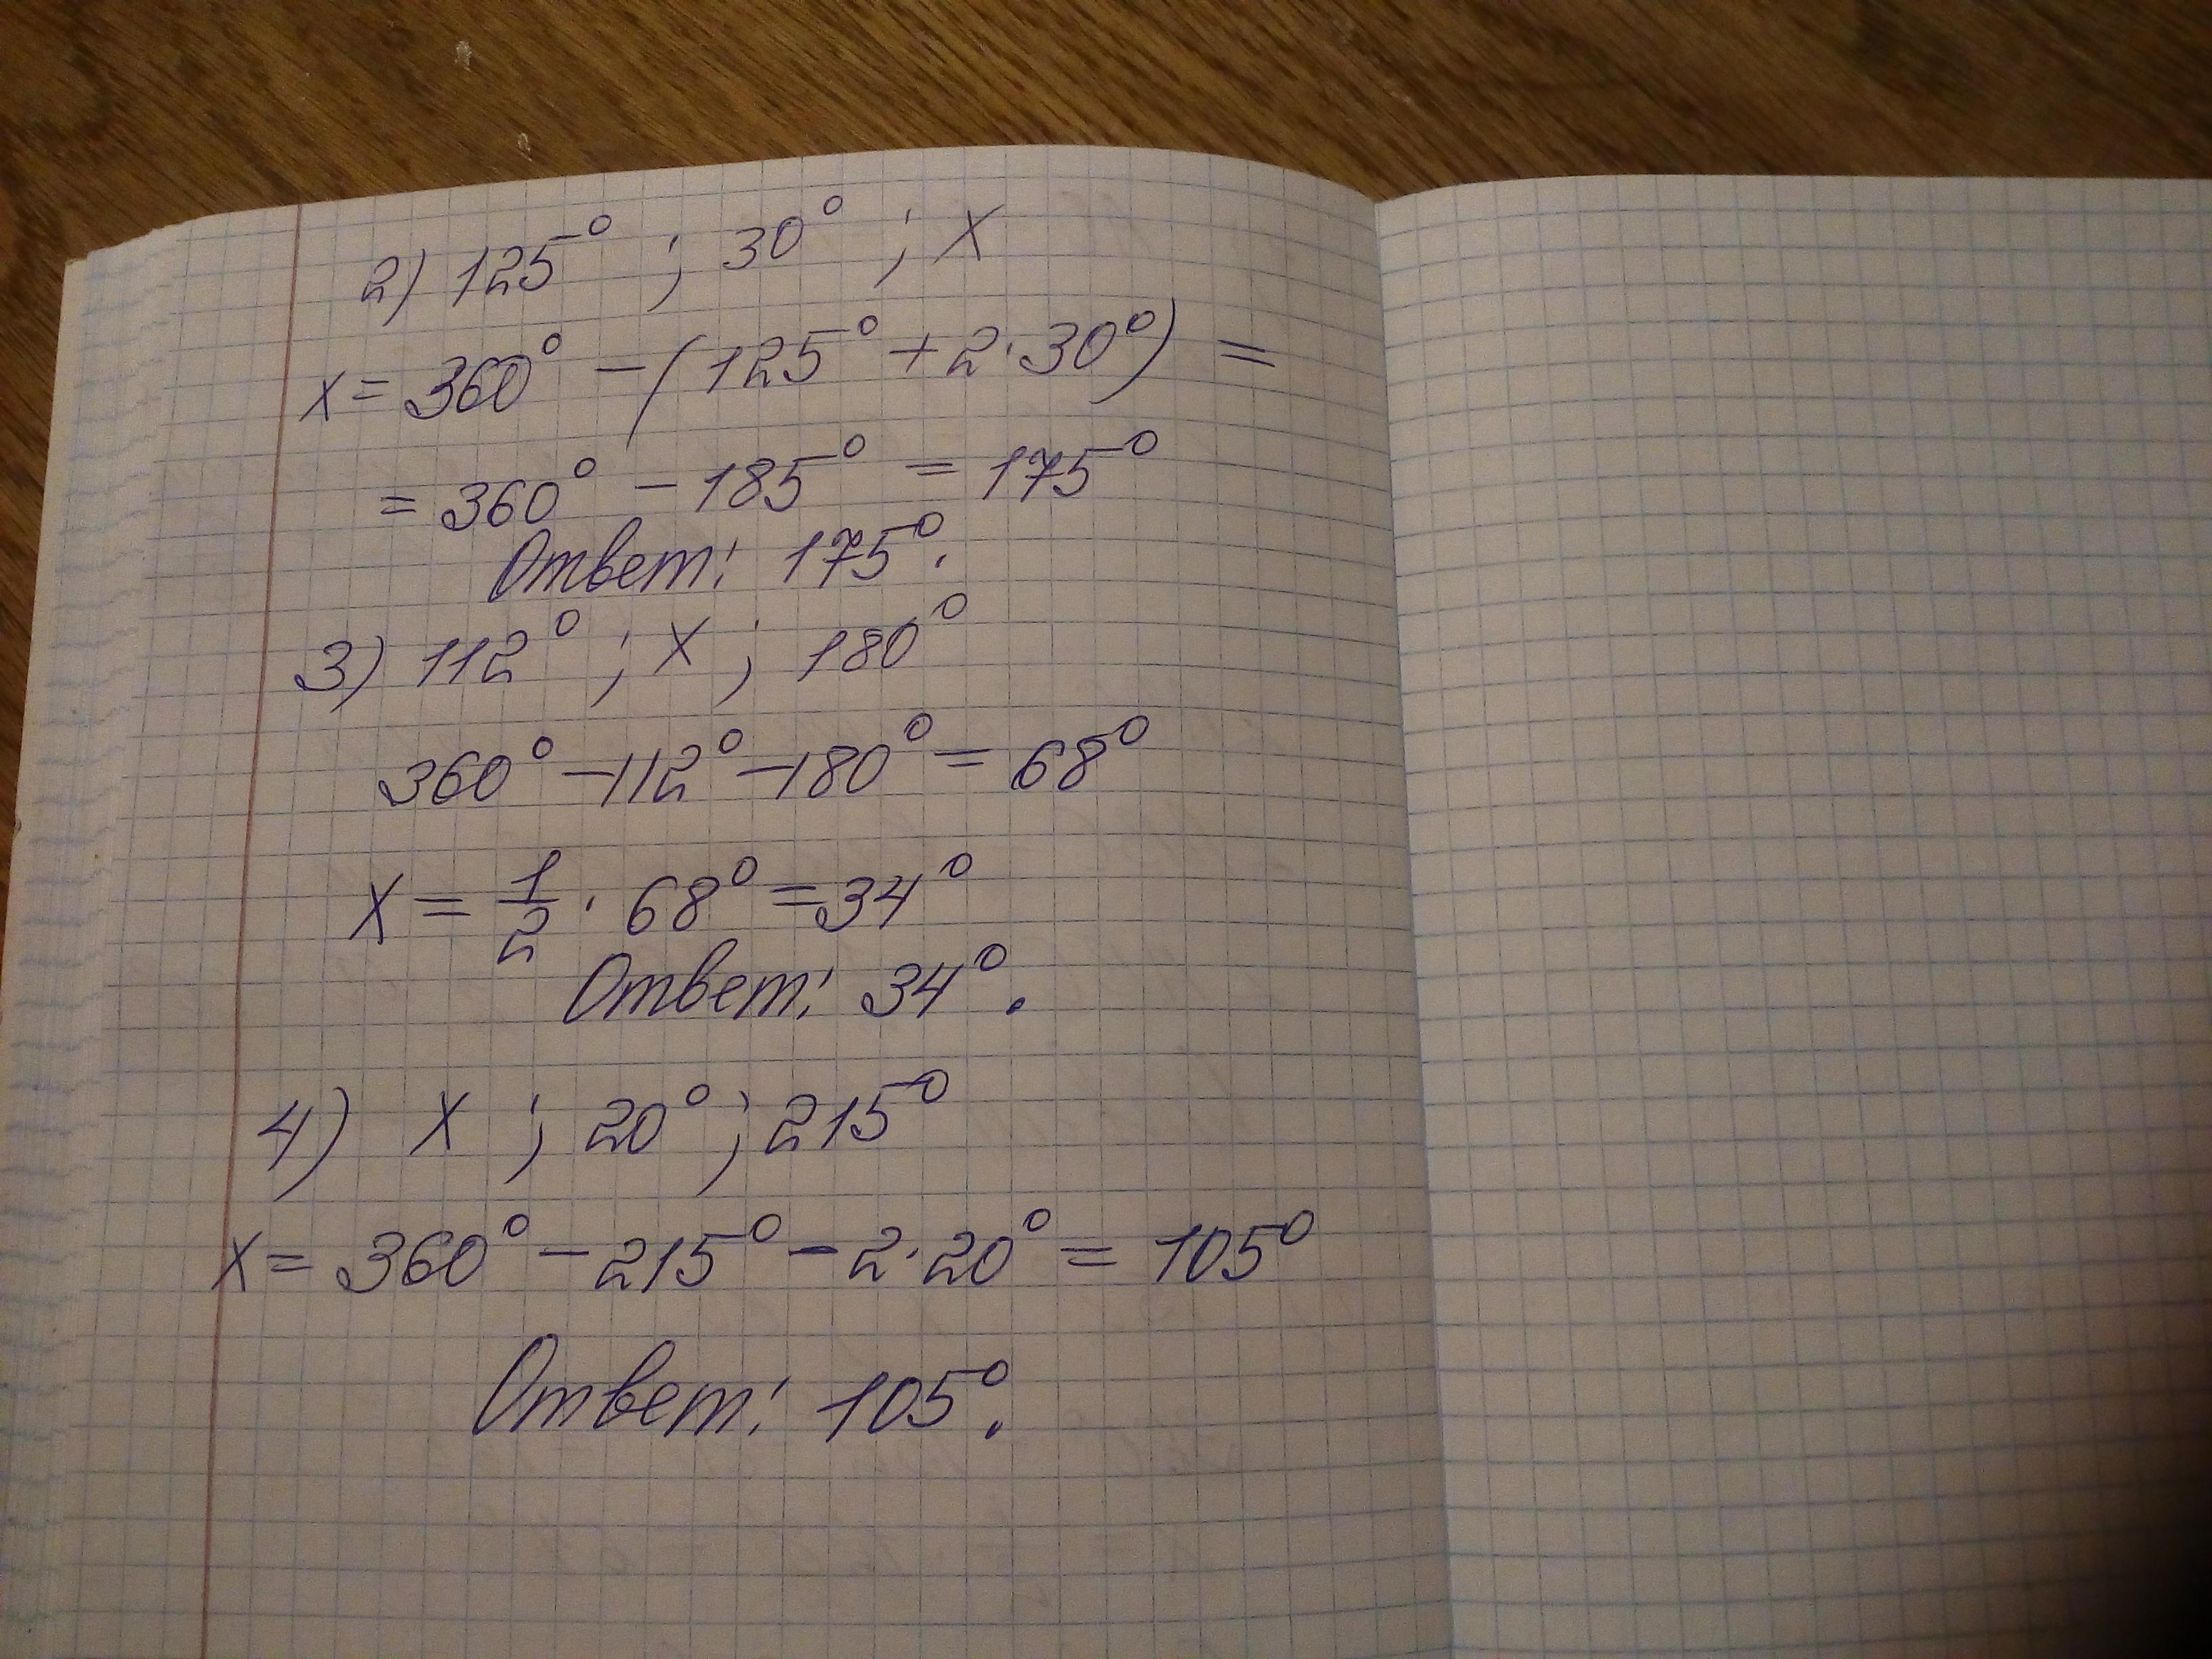 2) 125° ; 30° ; x
x = 360° - (125° + 2·30°) =
= 360° - 185° = 175°
Ответ: 175°.
3) 112° ; x ; 180°
360° - 112° - 180° = 68°
x = 1/2 · 68° = 34°
Ответ: 34°.
4) x ; 20° ; 215°
x = 360° - 215° - 2·20° = 105°
Ответ: 105°.